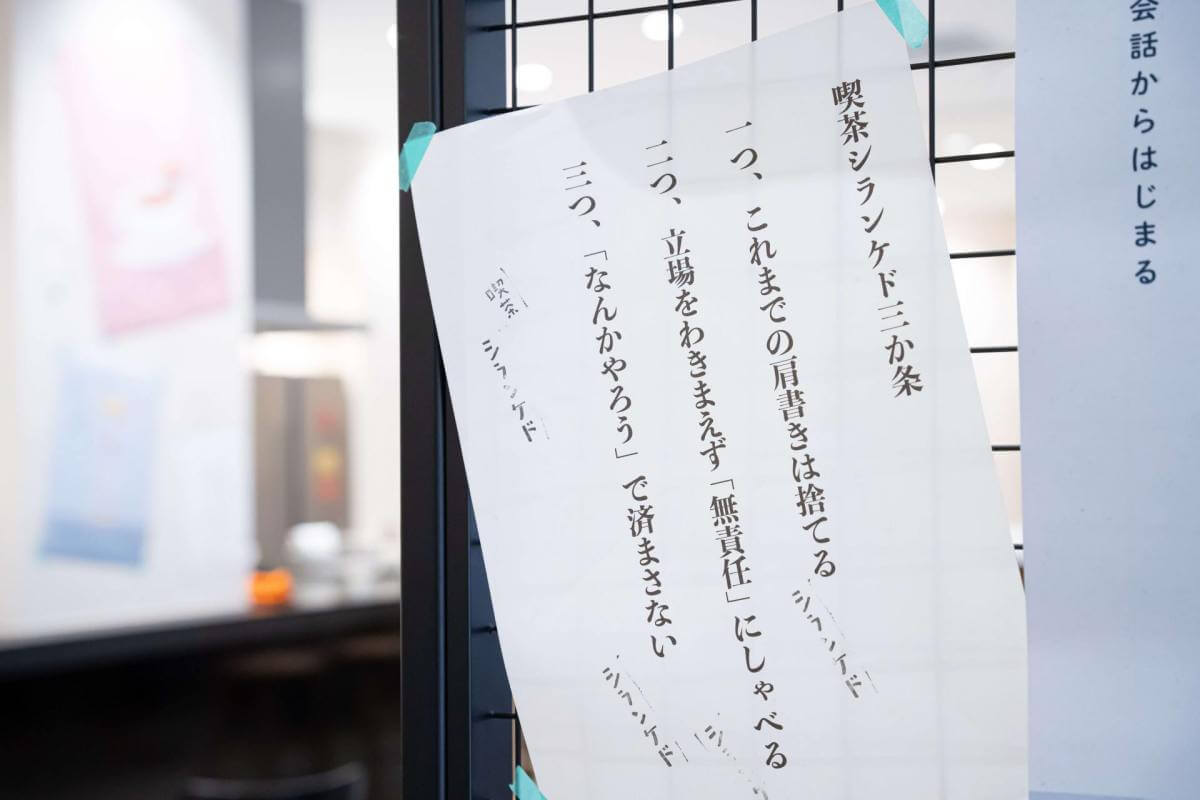 会話からはじまる
喫茶シランケド三か条
一つ、これまでの肩書きは捨てる
シランケド
二つ、立場をわきまえず「無責任」にしゃべる
三つ、「なんかやろう」で済まさない
シランケド
喫茶
シランケド